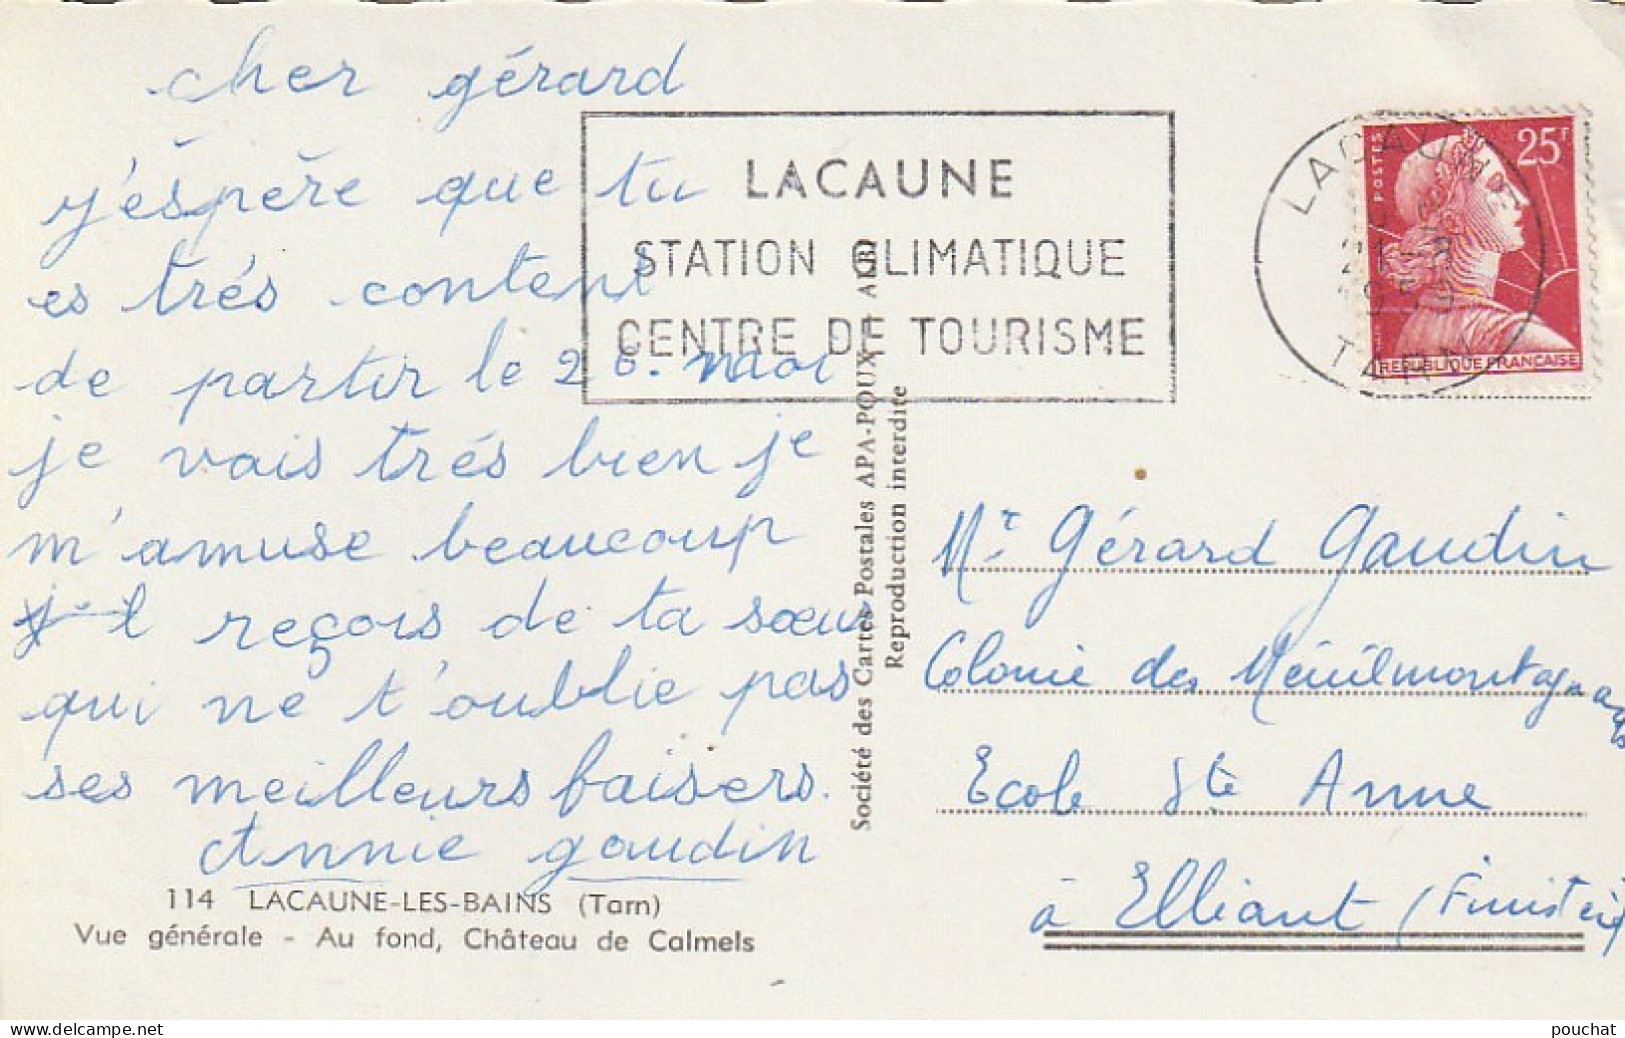 cher gérard
j'éspère que tu
es trés content
de partir le 26. moi
je vais trés bien je
m'amuse beaucoup
reçois de ta sœur
qui ne t'oublie pas
ses meilleurs baisers.
Annie gaudin
114 LACAUNE-LES-BAINS (Tarn)
Vue générale - Au fond, Château de Calmels
LACAUNE
STATION CLIMATIQUE
CENTRE DE TOURISME
Société des Cartes Postales APA-POUX - ALBI
Reproduction interdite
LACAUNE
21-8
1959
TARN
POSTES
25F
REPUBLIQUE FRANÇAISE
Mr Gérard Gaudin
Colonie des Ménilmontagnards
Ecole Ste Anne
à Elliant (Finistère)
https://www.delcampe.net
pouchat